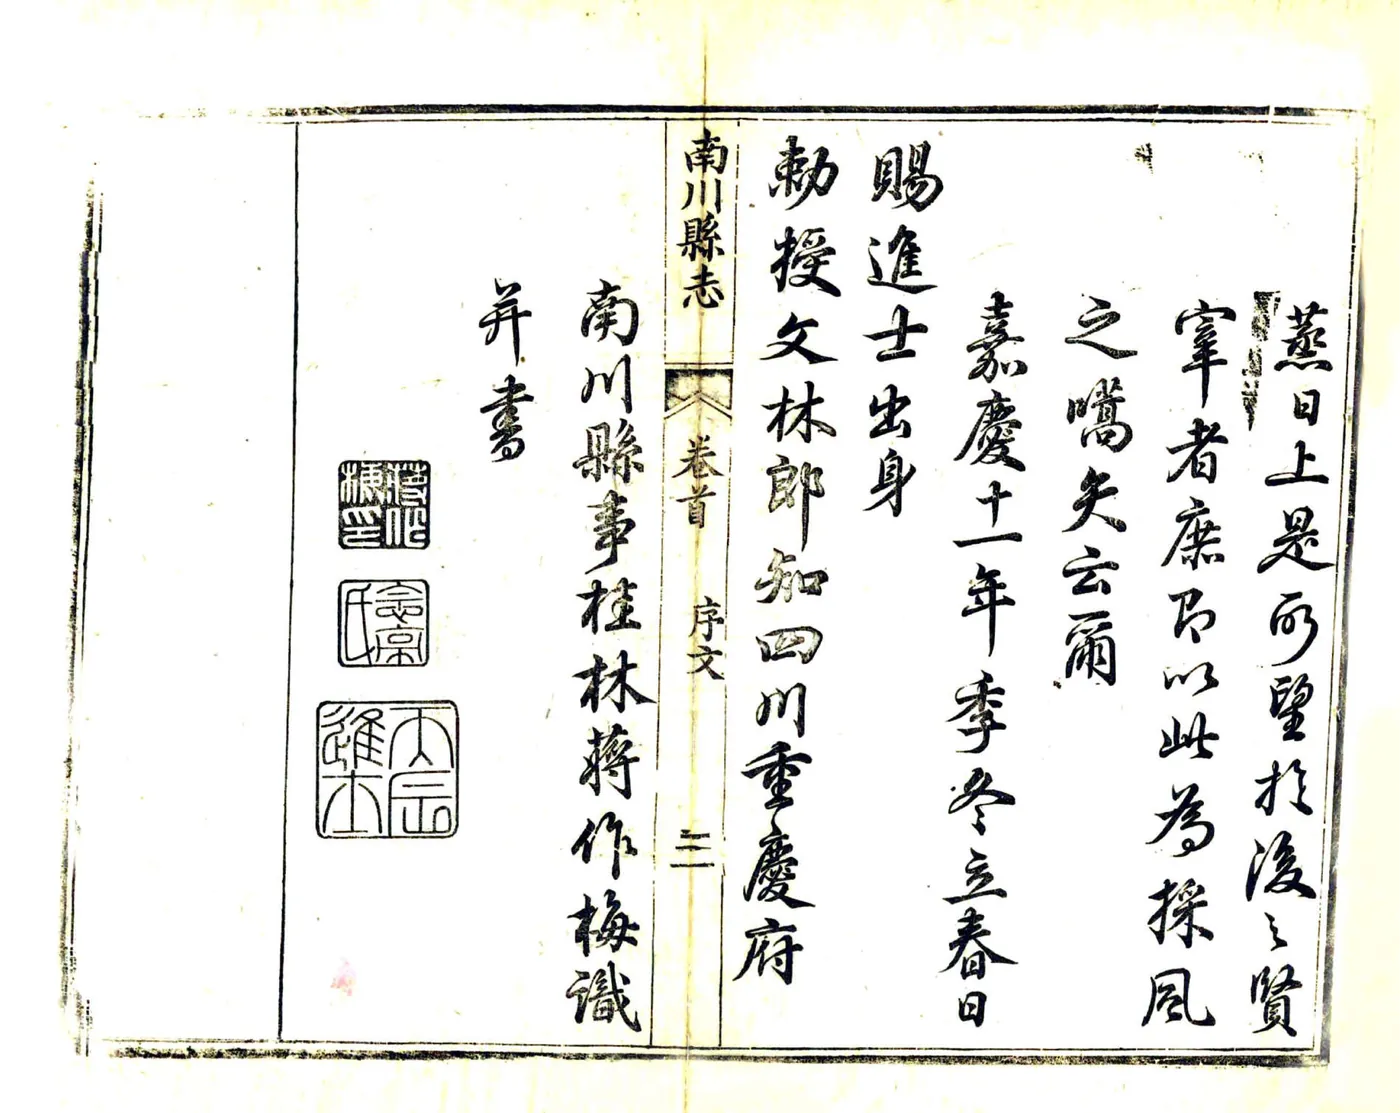 蒸日上是所望於後之賢
宰者庶即以此為採風
之嚆矢云爾
嘉慶十一年季冬立春日
賜進士出身
勅授文林郎知四川重慶府
南川縣志
卷首
序文
三
南川縣事桂林蔣作梅識
并書
蔣作梅印
念亭氏
丙辰進士